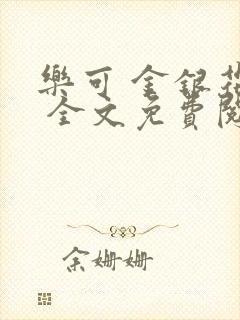 樂可 金銀花
全文免費閱
余姗姗